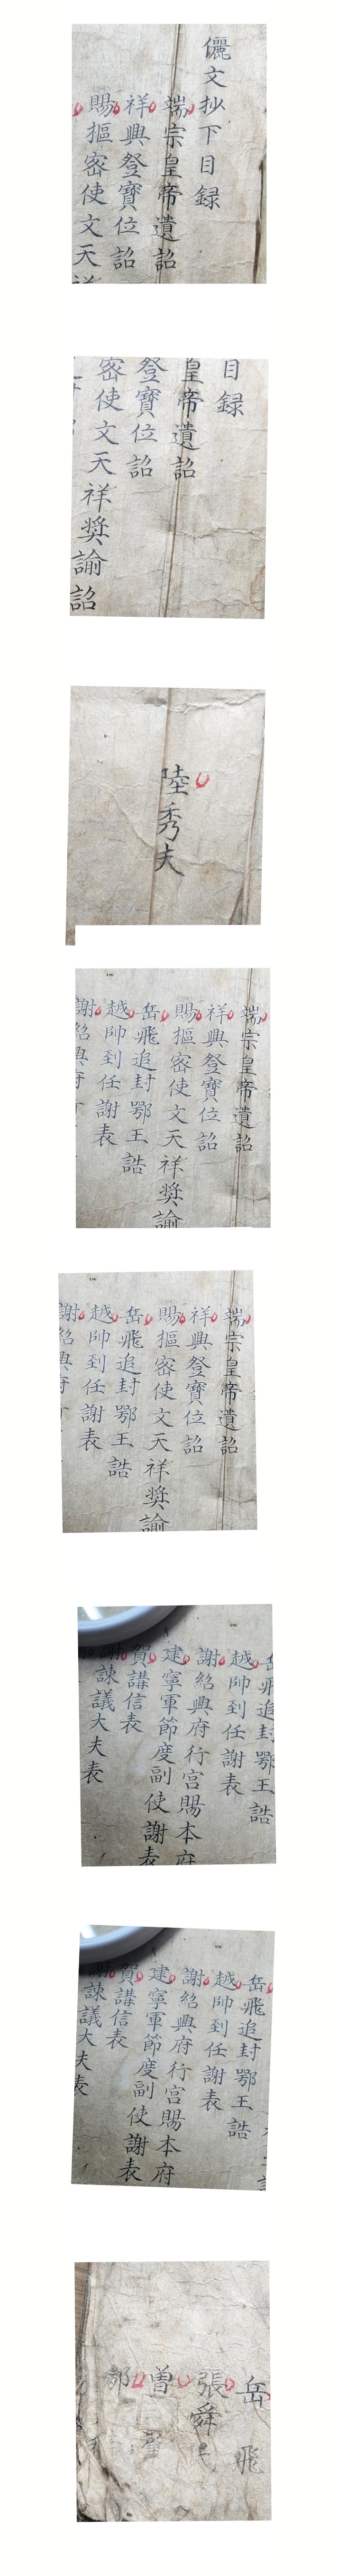 儷文抄下目録
端宗皇帝遺詔
祥興登寶位詔
賜樞密使文天祥
目録
皇帝遺詔
登寶位詔
密使文天祥奬諭詔
陸秀夫
端宗皇帝遺詔
祥興登寶位詔
賜樞密使文天祥奬諭
岳飛追封鄂王誥
越帥到任謝表
謝紹興府
端宗皇帝遺詔
祥興登寶位詔
賜樞密使文天祥奬諭
岳飛追封鄂王誥
越帥到任謝表
謝紹興府
岳飛追封鄂王誥
越帥到任謝表
謝紹興府行宮賜本府
建寧軍節度副使謝表
賀講信表
謝諫議大夫表
岳飛追封鄂王誥
越帥到任謝表
謝紹興府行宮賜本府
建寧軍節度副使謝表
賀講信表
謝諫議大夫表
岳飛
張舜
曽
鄒